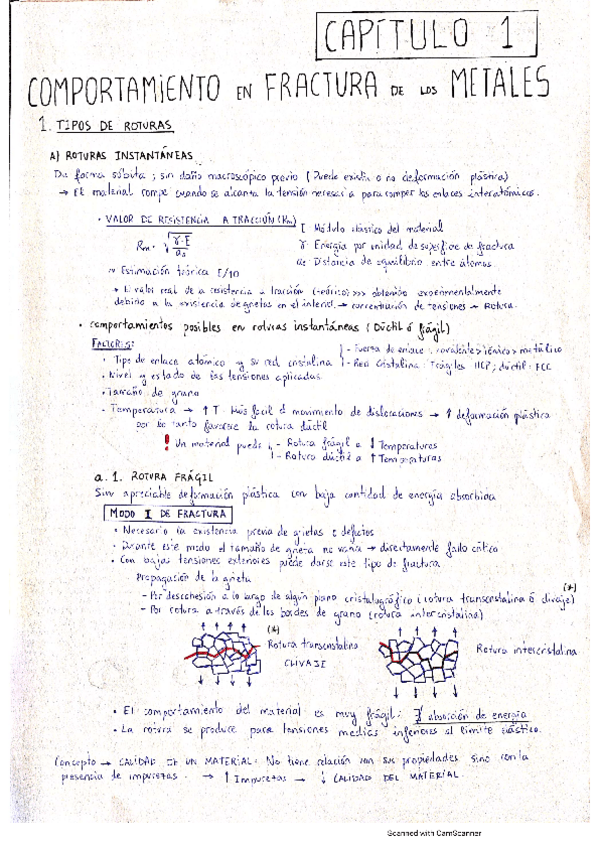 CAPÍTULO 1
COMPORTAMIENTO EN FRACTURA DE LOS METALES
1. TIPOS DE ROTURAS
A) ROTURAS INSTANTÁNEAS
De forma súbita, sin daño macroscópico previo (Puede existir o no deformación plástica)
→ El material rompe cuando se alcanza la tensión necesaria para romper los enlaces interatómicos.
• VALOR DE RESISTENCIA A TRACCIÓN (Rm)
E: Módulo elástico del material
Rm = √(γ·E/a₀)
γ: Energía por unidad de superficie de fractura
a₀: Distancia de equilibrio entre átomos
Estimación teórica E/10
→ El valor real de la resistencia a tracción (teórico) >>> obtenido experimentalmente
debido a la existencia de grietas en el interior → concentración de tensiones → Rotura.
• Comportamientos posibles en roturas instantáneas (Dúctil ó frágil)
FACTORES:
• Tipo de enlace atómico y su red cristalina
- Fuerza de enlace: covalente > iónico > metálico
- Red cristalina: Frágiles HCP; dúctil: FCC
• Nivel y estado de las tensiones aplicadas
• Tamaño de grano
• Temperatura → ↑T Más fácil el movimiento de dislocaciones → ↑ deformación plástica
por lo tanto favorece la rotura dúctil
! Un material puede
- Rotura frágil a ↓ Temperaturas
- Rotura dúctil a ↑ Temperaturas
a. 1. ROTURA FRÁGIL
Sin apreciable deformación plástica con baja cantidad de energía absorbida
MODO I DE FRACTURA
• Necesario la existencia previa de grietas o defectos
• Durante este modo el tamaño de grieta no varía → directamente fallo crítico
• Con bajas tensiones exteriores puede darse este tipo de fractura
Propagación de la grieta
- Por descohesión a lo largo de algún plano cristalográfico (rotura transcristalina ó clivaje) (*)
- Por rotura a través de los bordes de grano (rotura intercristalina)
(*)
Rotura transcristalina
CLIVAJE
Rotura intercristalina
• El comportamiento del material es muy frágil: absorción de energía
• La rotura se produce para tensiones medias inferiores al límite elástico.
Concepto → CALIDAD DE UN MATERIAL: No tiene relación con sus propiedades sino con la
presencia de impurezas. → ↑ Impurezas → ↓ CALIDAD DEL MATERIAL
Scanned with CamScanner